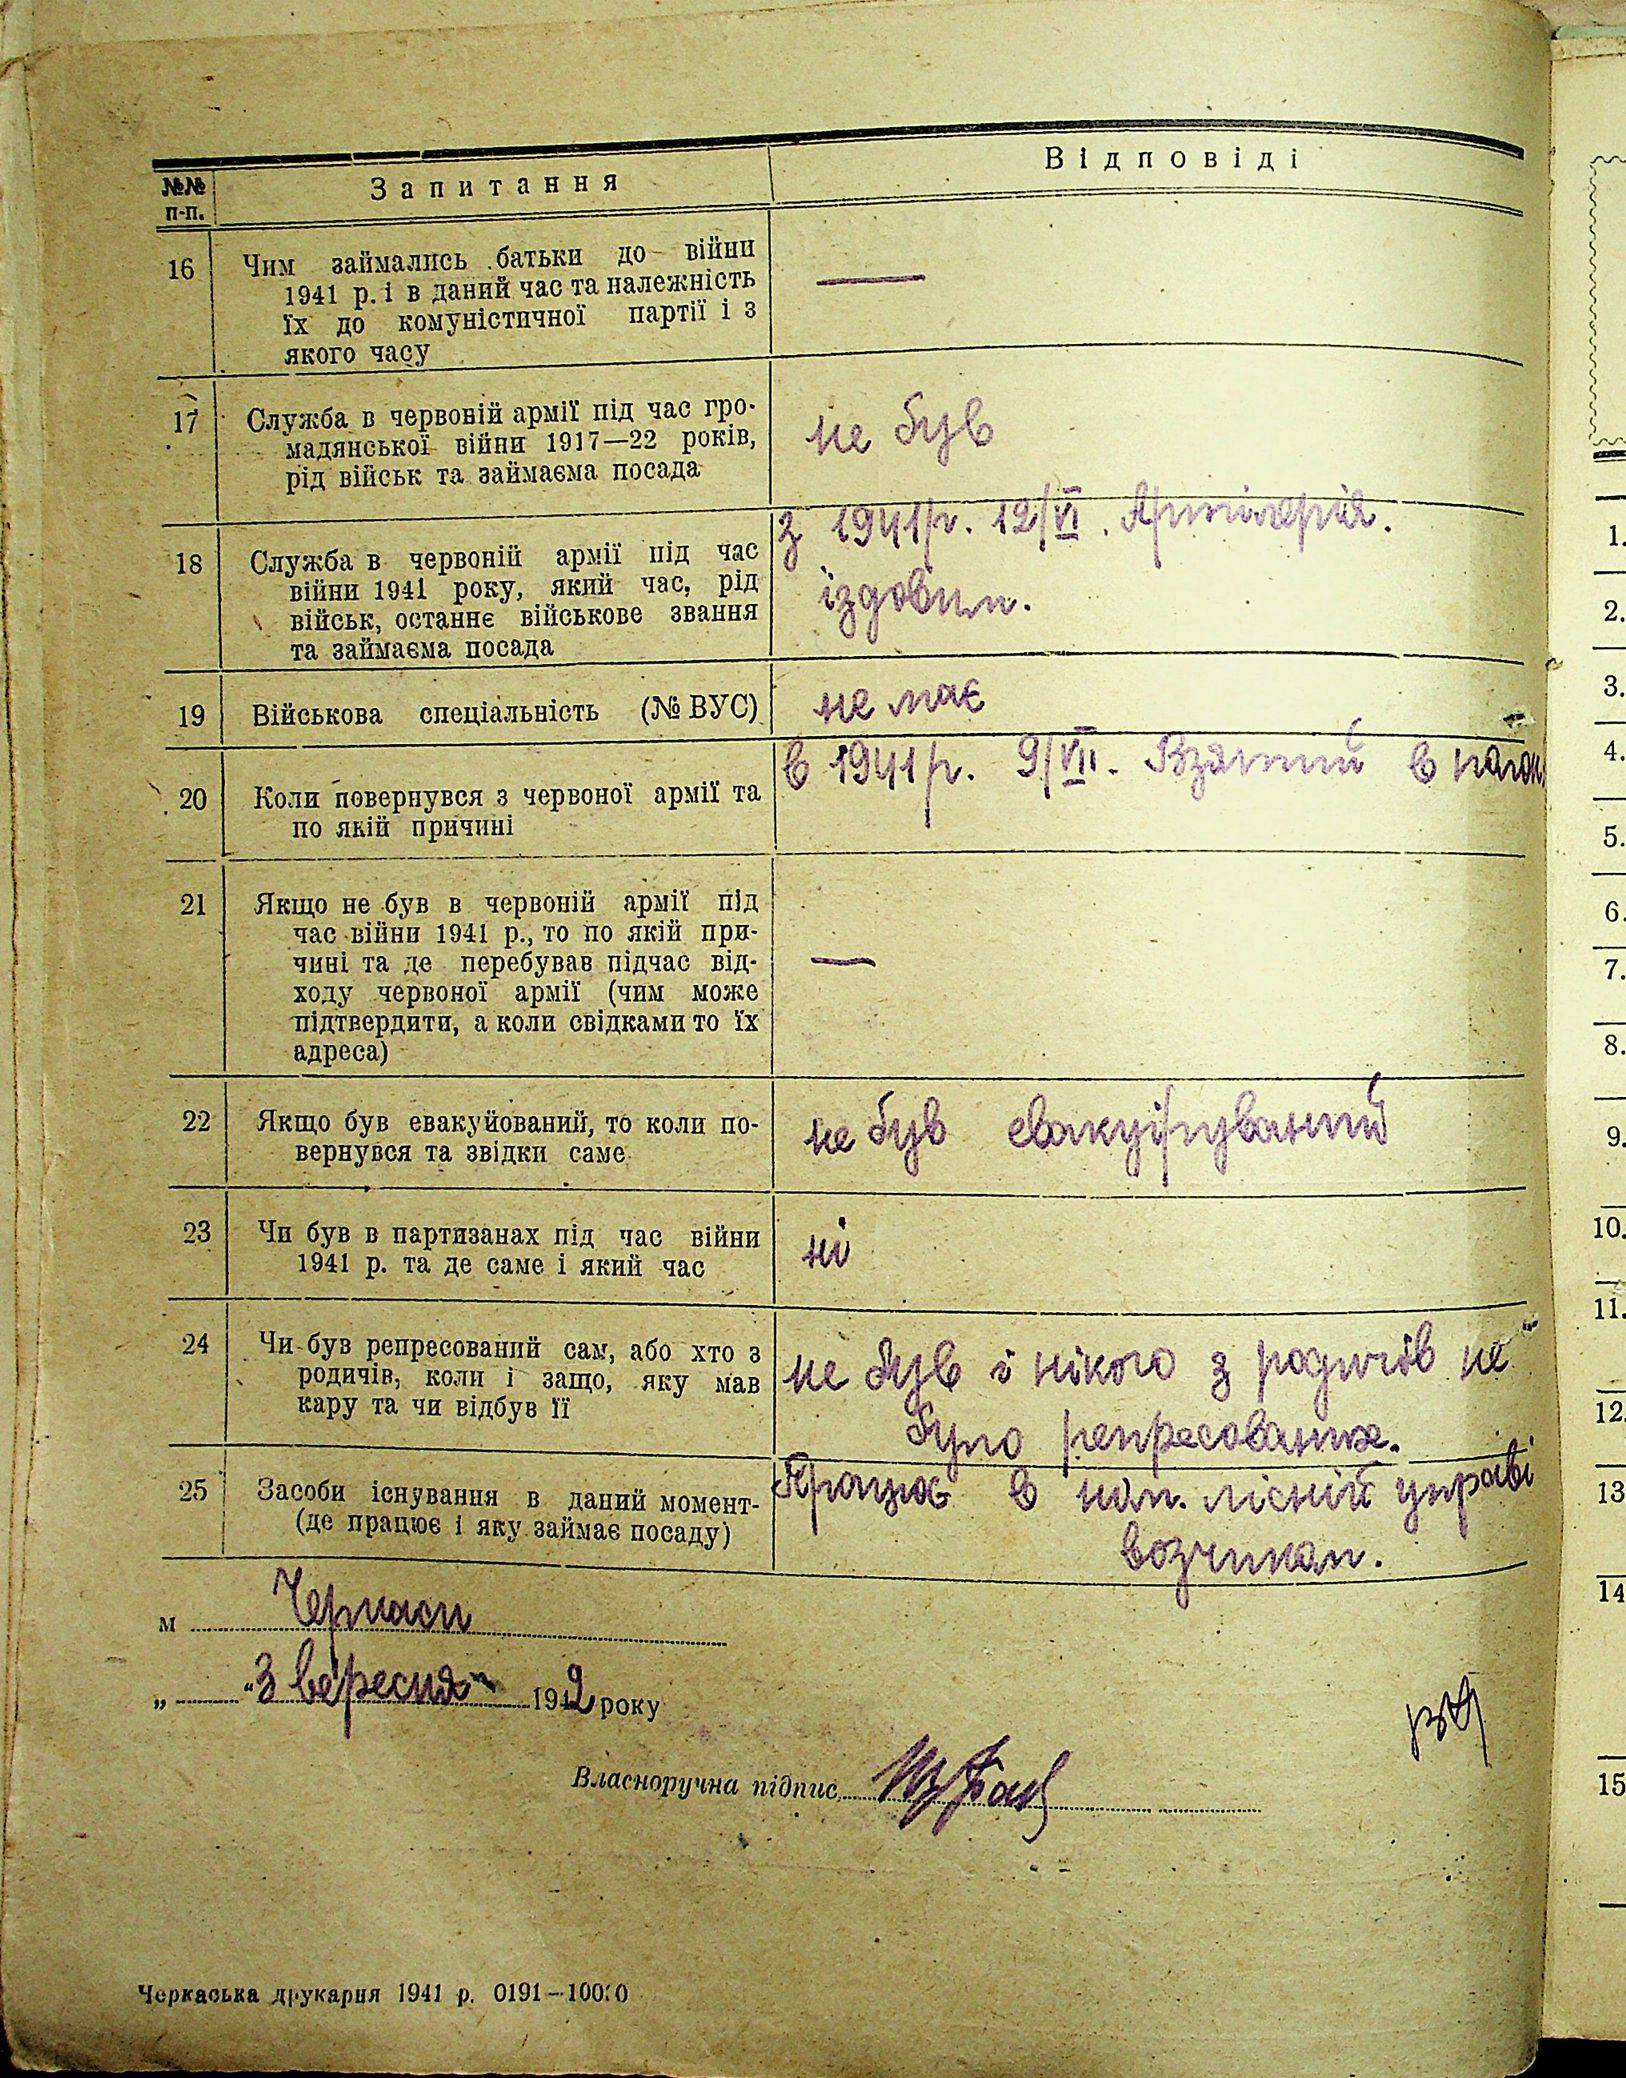 №№ п-п.
Запитання
Відповіді
16
Чим займались батьки до війни
1941 р. і в даний час та належність
їх до комуністичної партії і з
якого часу
—
17
Служба в червоній армії під час гро-
мадянської війни 1917—22 років,
рід військ та займаєма посада
не був
18
Служба в червоній армії під час
війни 1941 року, який час, рід
військ, останнє військове звання
та займаєма посада
з 1941 р. 12/VI. Артілерія.
їздовим.
19
Військова спеціальність (№ ВУС)
не має
20
Коли повернувся з червоної армії та
по якій причині
в 1941 р. 9/VII. Взятий в
21
Якщо не був в червоній армії під
час війни 1941 р., то по якій при-
чині та де перебував підчас від-
ходу червоної армії (чим може
підтвердити, а коли свідками то їх
адреса)
—
22
Якщо був евакуйований, то коли по-
вернувся та звідки саме
не був евакуіруваний
23
Чи був в партизанах під час війни
1941 р. та де саме і який час
ні
24
Чи був репресований сам, або хто з
родичів, коли і защо, яку мав
кару та чи відбув її
не був і нікого з родичів не
було репресованих.
25
Засоби існування в даний момент-
(де працює і яку займає посаду)
Працює в лісній управі
возчиком.
м Черкаси
„ “ 3 вересня 1942 року
Власноручна підпис
Черкаська друкарня 1941 р. 0191—10000
1.
2.
3.
4.
5.
6.
7.
8.
9.
10.
11.
12.
13
14
15